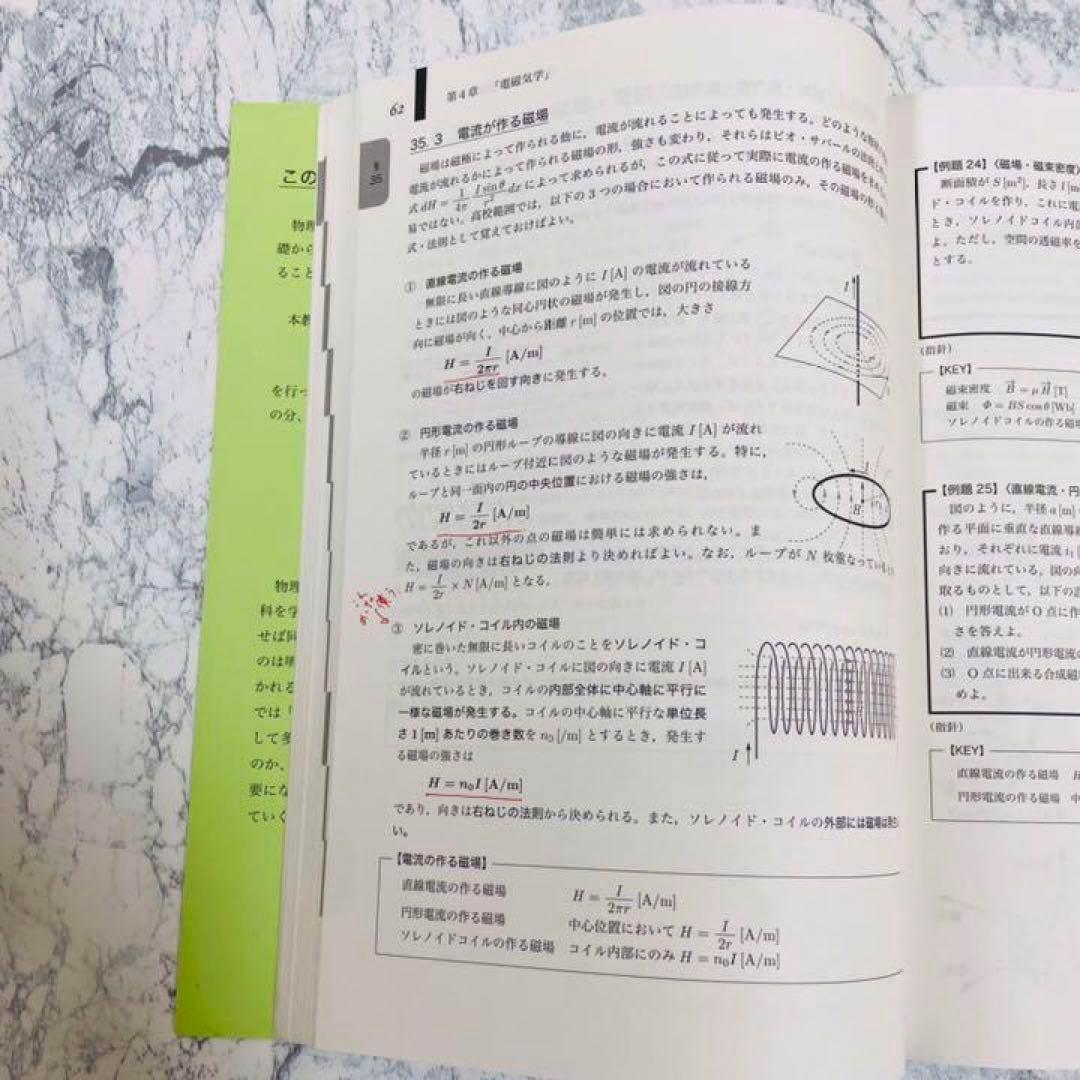 この
物理
礎から
ること
本教
を行っ
の分、
物理
科を学
せば同
のは明
かれる
では「
して多
のか、
要にな
ていく
62 第4章 「電磁気学」
§
35
35. 3 電流が作る磁場
磁場は磁極によって作られる他に，電流が流れることによっても発生する。どのような
電流が流れるかによって作られる磁場の形，強さも変わり，それらはビオ・サバールの法則
式 dH = 1/4π I sinθ/r² dx によって求められるが，この式に従って実際に電流の作る磁場を
易ではない。高校範囲では，以下の3つの場合において作られる磁場のみ，その磁場の形
式・法則として覚えておけばよい。
① 直線電流の作る磁場
無限に長い直線導線に図のように I [A] の電流が流れている
ときには図のような同心円状の磁場が発生し，図の円の接線方
向に磁場が向く，中心から距離 r [m] の位置では，大きさ
H = I/2πr [A/m]
の磁場が右ねじを回す向きに発生する。
I
② 円形電流の作る磁場
半径 r [m] の円形ループの導線に図の向きに電流 I [A] が流れ
ているときにはループ付近に図のような磁場が発生する。特に，
ループと同一面内の円の中央位置における磁場の強さは，
H = I/2r [A/m]
であるが，これ以外の点の磁場は簡単には求められない。ま
た，磁場の向きは右ねじの法則より決めればよい。なお，ループが N 枚重なっている
H = I/2r × N [A/m] となる。
I
H
③ ソレノイド・コイル内の磁場
密に巻いた無限に長いコイルのことをソレノイド・コ
イルという。ソレノイド・コイルに図の向きに電流 I [A]
が流れているとき，コイルの内部全体に中心軸に平行に
一様な磁場が発生する。コイルの中心軸に平行な単位長
さ1 [m] あたりの巻き数を n₀ [/m] とするとき，発生す
る磁場の強さは
H = n₀I [A/m]
であり，向きは右ねじの法則から決められる。また，ソレノイド・コイルの外部には磁場は
い。
I
【電流の作る磁場】
直線電流の作る磁場 H = I/2πr [A/m]
円形電流の作る磁場 中心位置において H = I/2r [A/m]
ソレノイドコイルの作る磁場 コイル内部にのみ H = n₀I [A/m]
【例題 24】〈磁場・磁束密度〉
断面積が S [m²]，長さ l [m]
ド・コイルを作り，これに電
とき，ソレノイドコイル内
よ。ただし，空間の透磁率を
とする。
(指針)
【KEY】
磁束密度 B = μH [T]
磁束 Φ = BS cosθ [Wb]
ソレノイドコイルの作る磁場
【例題 25】〈直線電流・円
図のように，半径 a [m]
作る平面に垂直な直線導線
おり，それぞれに電流 i₁
向きに流れている。図の向
取るものとして，以下の
(1) 円形電流がO点に作
さを答えよ。
(2) 直線電流が円形電流の
(3) O点に出来る合成磁
めよ。
(指針)
【KEY】
直線電流の作る磁場
円形電流の作る磁場 中